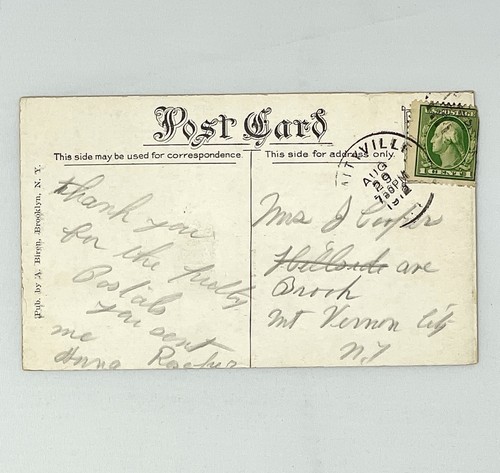 Post Card
This side may be used for correspondence.
This side for address only.
Pub. by A. Biren, Brooklyn, N. Y.
thank you
for the pretty
Postals
you sent
me
Anna
U.S. POSTAGE
1 CENT 1
VILLE
AUG
29
Mrs J Cooper
Hillside ave
Brook
Mt Vernon City
N.Y